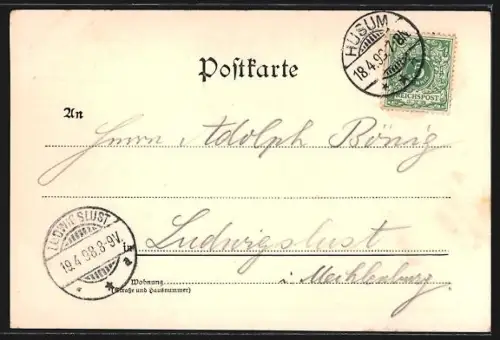 HUSUM
18.4.98.7-8N
REICHSPOST
Postkarte
An
Herrn Adolph Bönig
LUDWIGSLUST
19.4.98.8-9V.
in
Ludwigslust
i. Mecklenburg.
Wohnung
(Straße und Hausnummer)